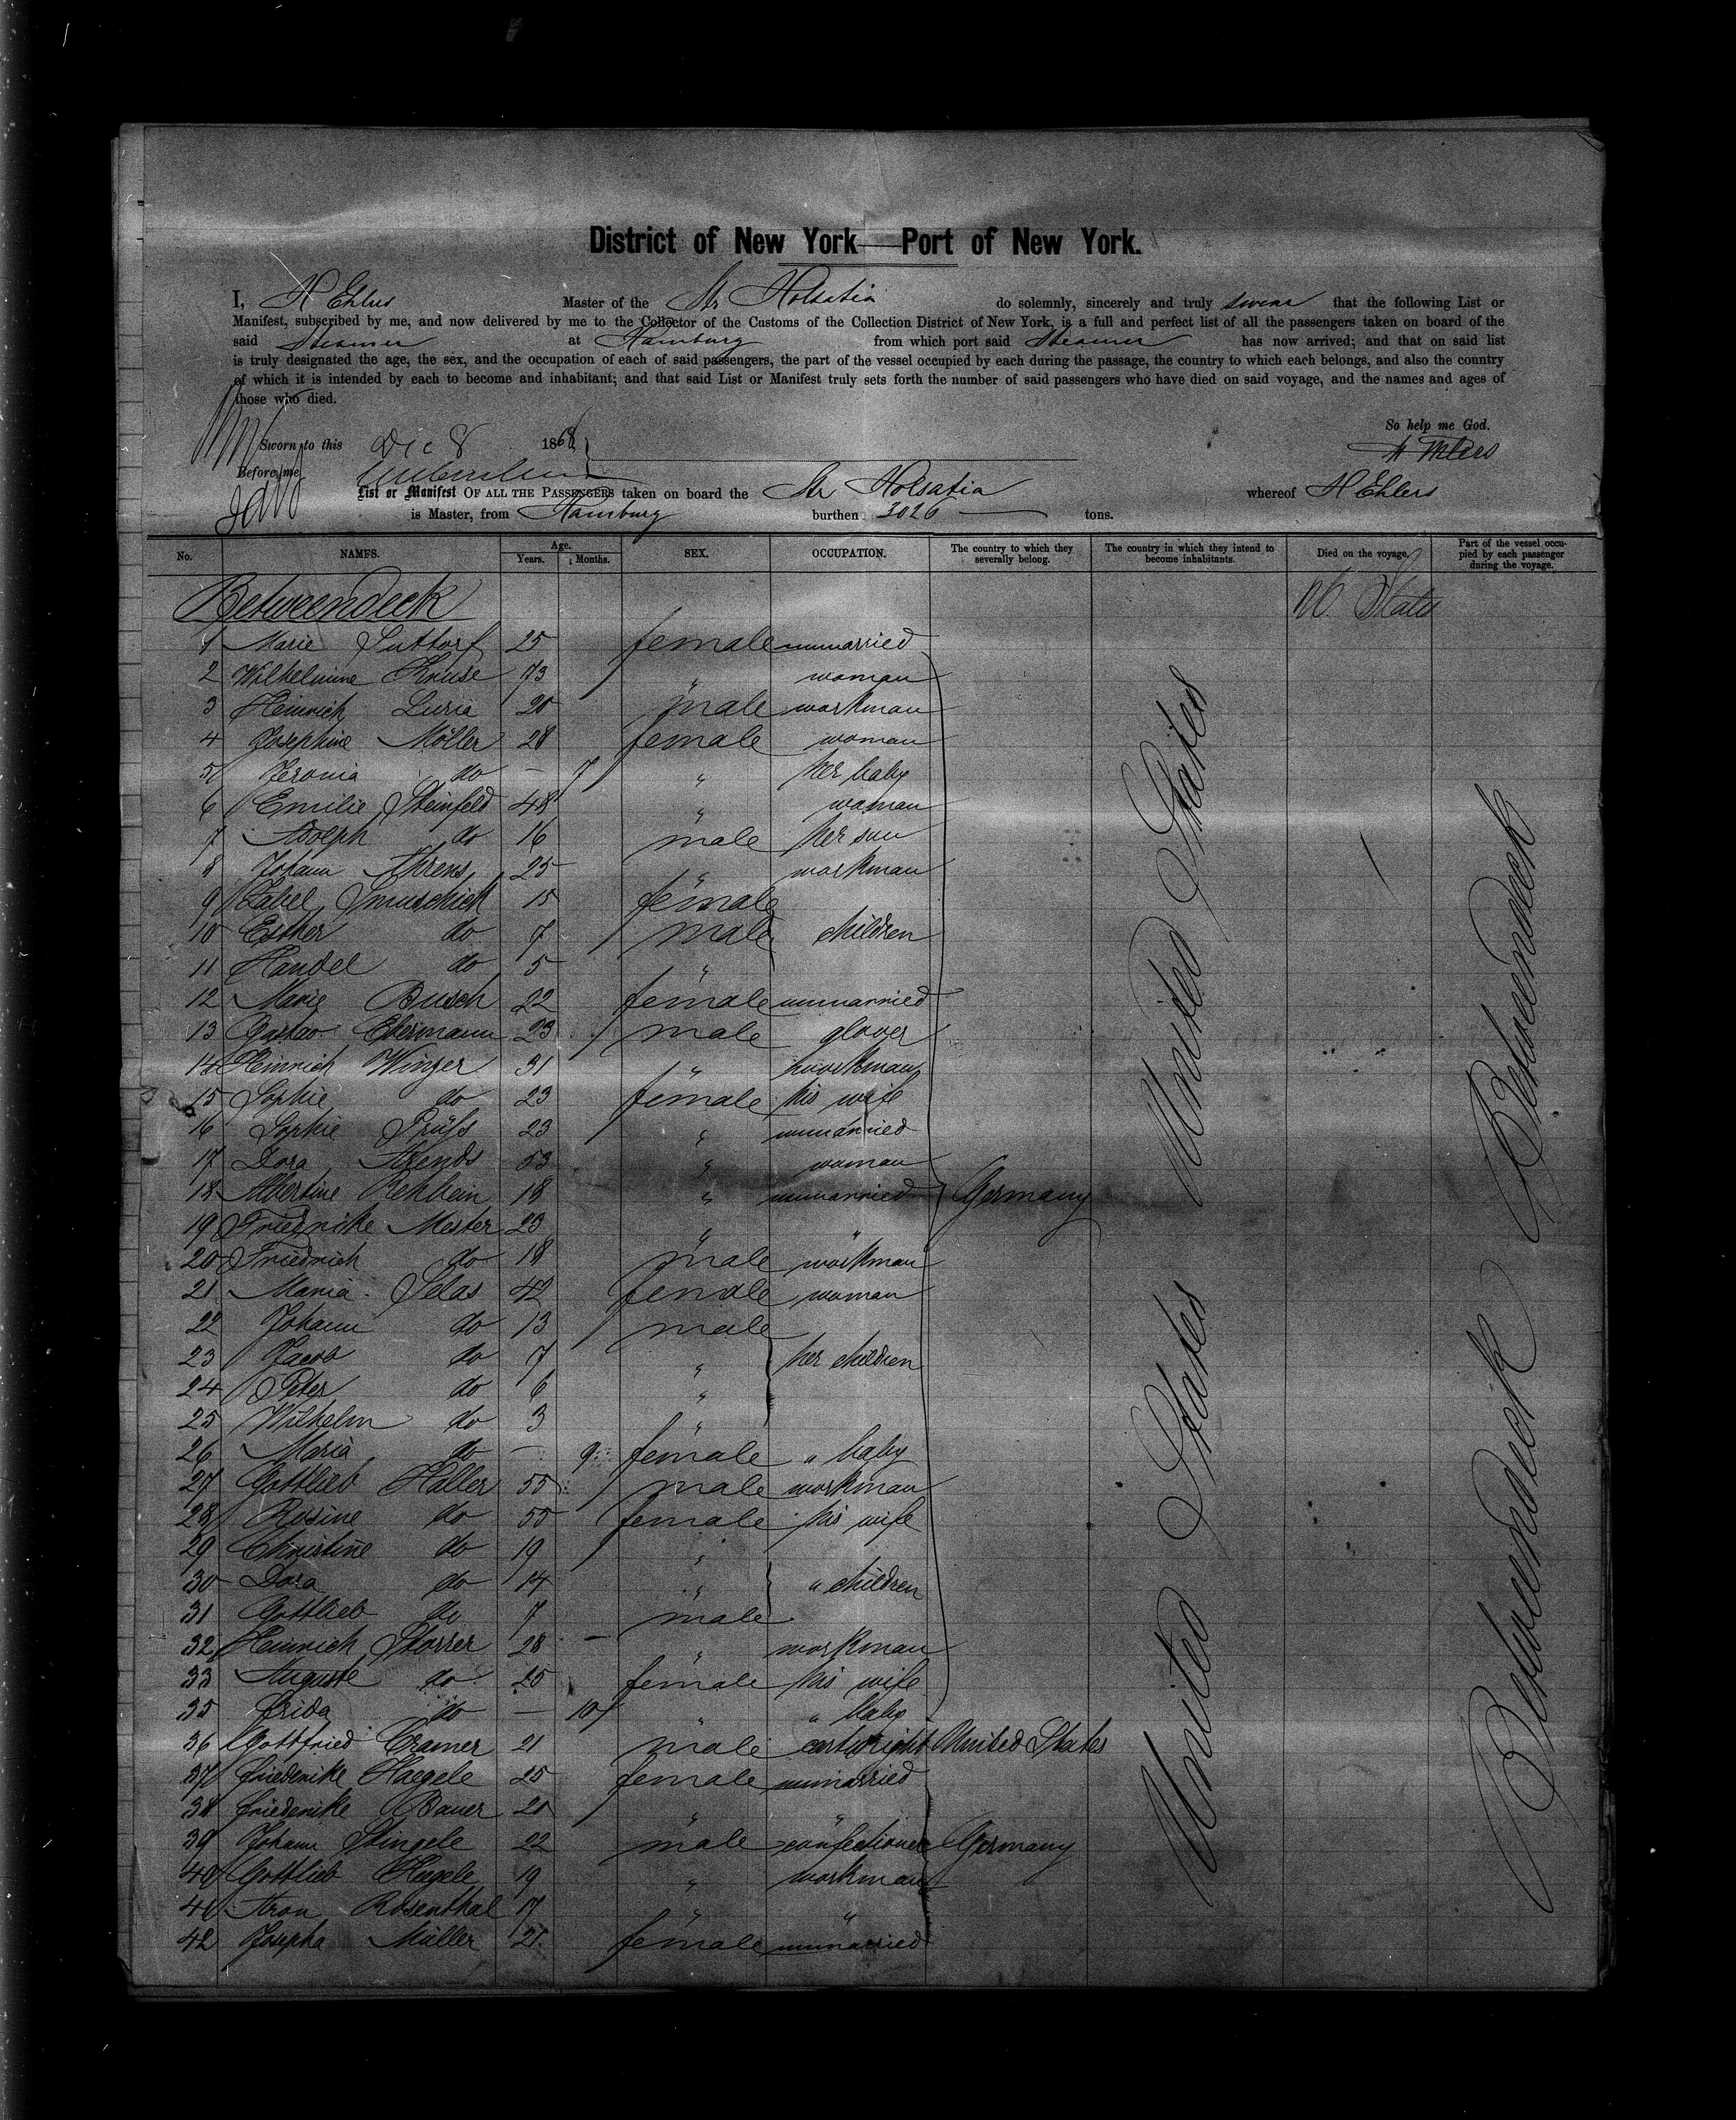 District of New York—Port of New York.
I, H Ehlers Master of the Str Holsatia do solemnly, sincerely and truly swear that the following List or
Manifest, subscribed by me, and now delivered by me to the Collector of the Customs of the Collection District of New York, is a full and perfect list of all the passengers taken on board of the
said Steamer at Hamburg from which port said Steamer has now arrived; and that on said list
is truly designated the age, the sex, and the occupation of each of said passengers, the part of the vessel occupied by each during the passage, the country to which each belongs, and also the country
of which it is intended by each to become and inhabitant; and that said List or Manifest truly sets forth the number of said passengers who have died on said voyage, and the names and ages of
those who died.
So help me God.
Sworn to this Dec 8 1868
H Ehlers
Before me
List or Manifest OF ALL THE PASSENGERS taken on board the Str Holsatia whereof H Ehlers
is Master, from Hamburg burthen 3026 tons.
No. NAMES. Age. Years. Months. SEX. OCCUPATION. The country to which they severally belong. The country in which they intend to become inhabitants. Died on the voyage. Part of the vessel occupied by each passenger during the voyage.
Betweendeck
1 Marie Suttorf 25 female unmarried
2 Wilhelmine Kruse 73 " woman
3 Heinrich Luria 20 male workman
4 Josephine Möller 28 female woman
5 do - 7 " her baby
6 Emilie Steinfeld 48 " woman
7 Adolph do 16 male her son
8 Johann Ahrens 25 " workman
9 15 female
10 Esther do 7 male children
11 Handel do 5 "
12 Marie Busch 22 female unmarried
13 Gustav Ebermann 23 male glover
14 Heinrich Winzer 31 " workman
15 Sophie do 23 female his wife
16 Sophie Prüss 23 " unmarried
17 Dora Arends 53 " woman
18 Albertine Rehbein 18 " unmarried Germany
19 Friedrike Mester 23 " "
20 Friedrich do 18 male workman
21 Maria Selas 42 female woman
22 Johann do 13 male
23 Jacob do 7 " her children
24 Peter do 6 "
25 Wilhelm do 3 "
26 Maria do - 9 female " baby
27 Gottlieb Haller 55 male workman
28 Rosine do 55 female his wife
29 Christine do 19 "
30 Dora do 14 " " children
31 Gottlieb do 7 male
32 Heinrich Storrer 28 - " workman
33 Auguste do 25 female his wife
35 Frida do - 10 " " baby
36 Gottfried Cramer 21 male cartwright United States
37 Friederike Haegele 25 female unmarried
38 Friederike Bauer 20 " "
39 Johann Stingele 22 male confectioner Germany
40 Gottlieb Hegele 19 " workman
41 Aron Rosenthal 17 " "
42 Josepha Müller 21 female unmarried
United States
United States
Betweendeck
Betweendeck